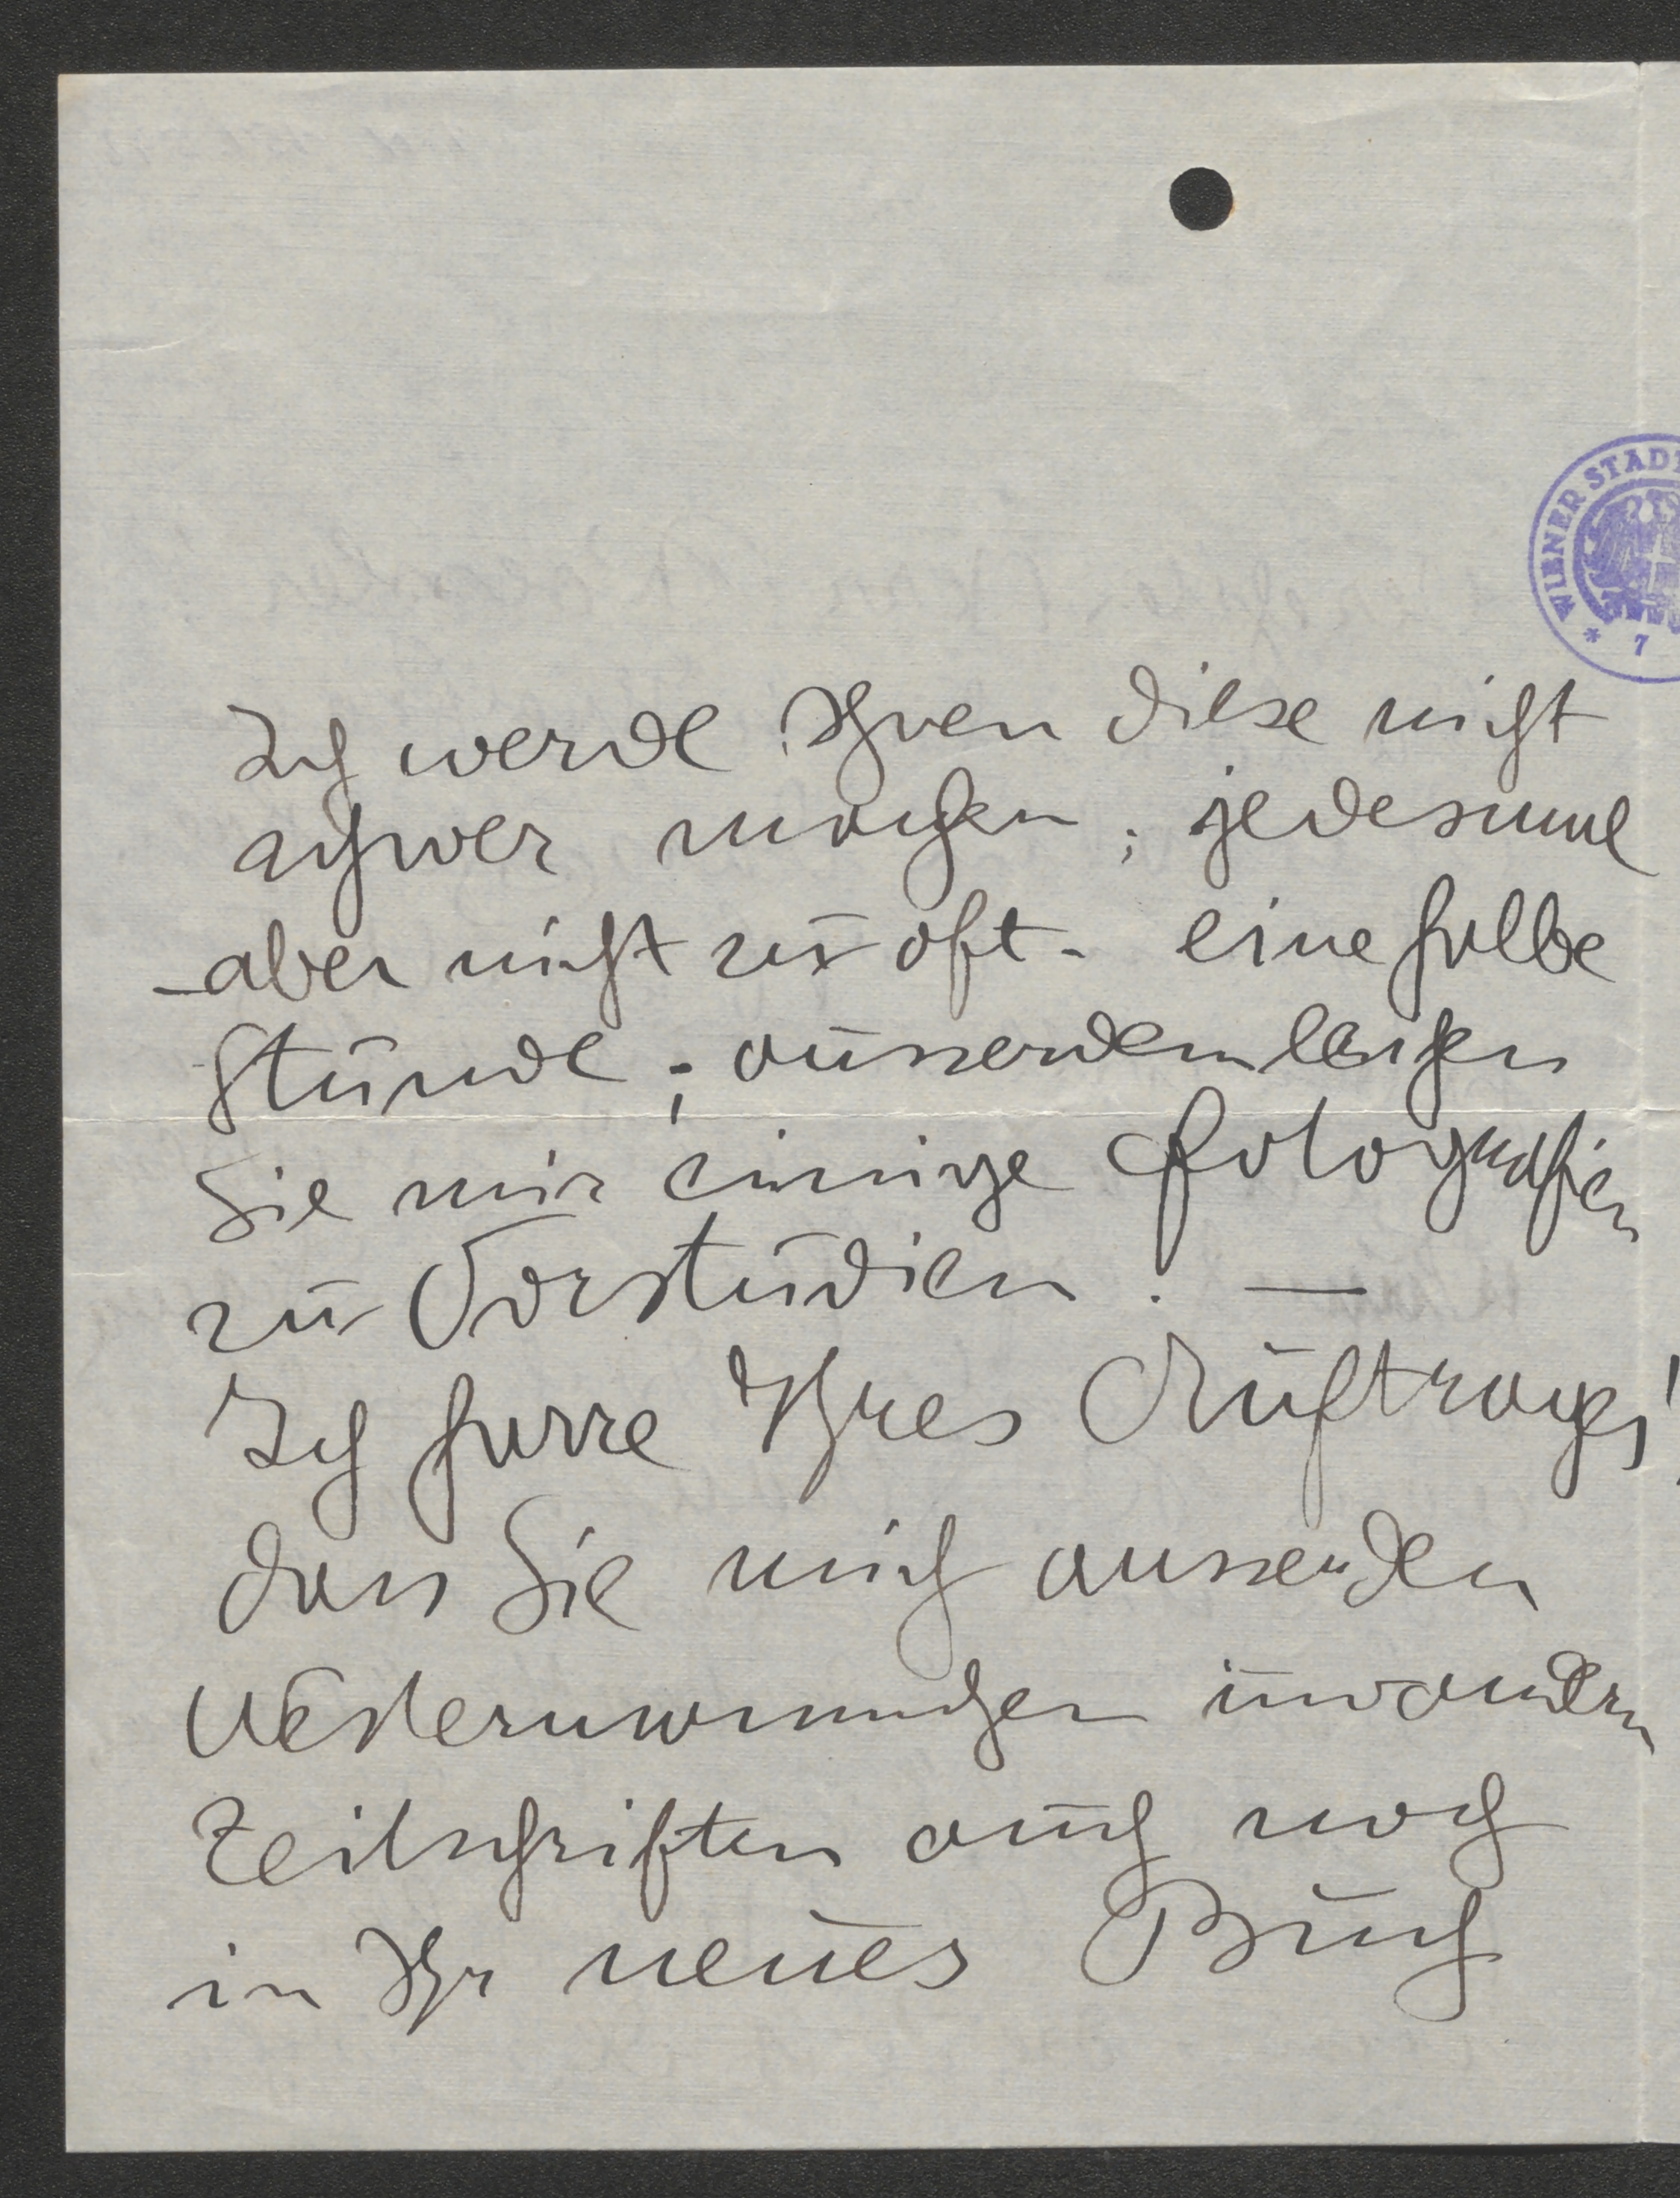 WIENER STADT
* 7
Ich werde Ihnen diese nicht
schwer machen; jedesmal
– aber nicht zu oft – eine halbe
Stunde; ausserdem leihen
Sie mir einige Fotografien
zu Vorstudien. —
Ich harre Ihres Auftrages!
dass Sie mich ausser den
in andern
Zeitschriften auch noch
in Ihr neues Buch